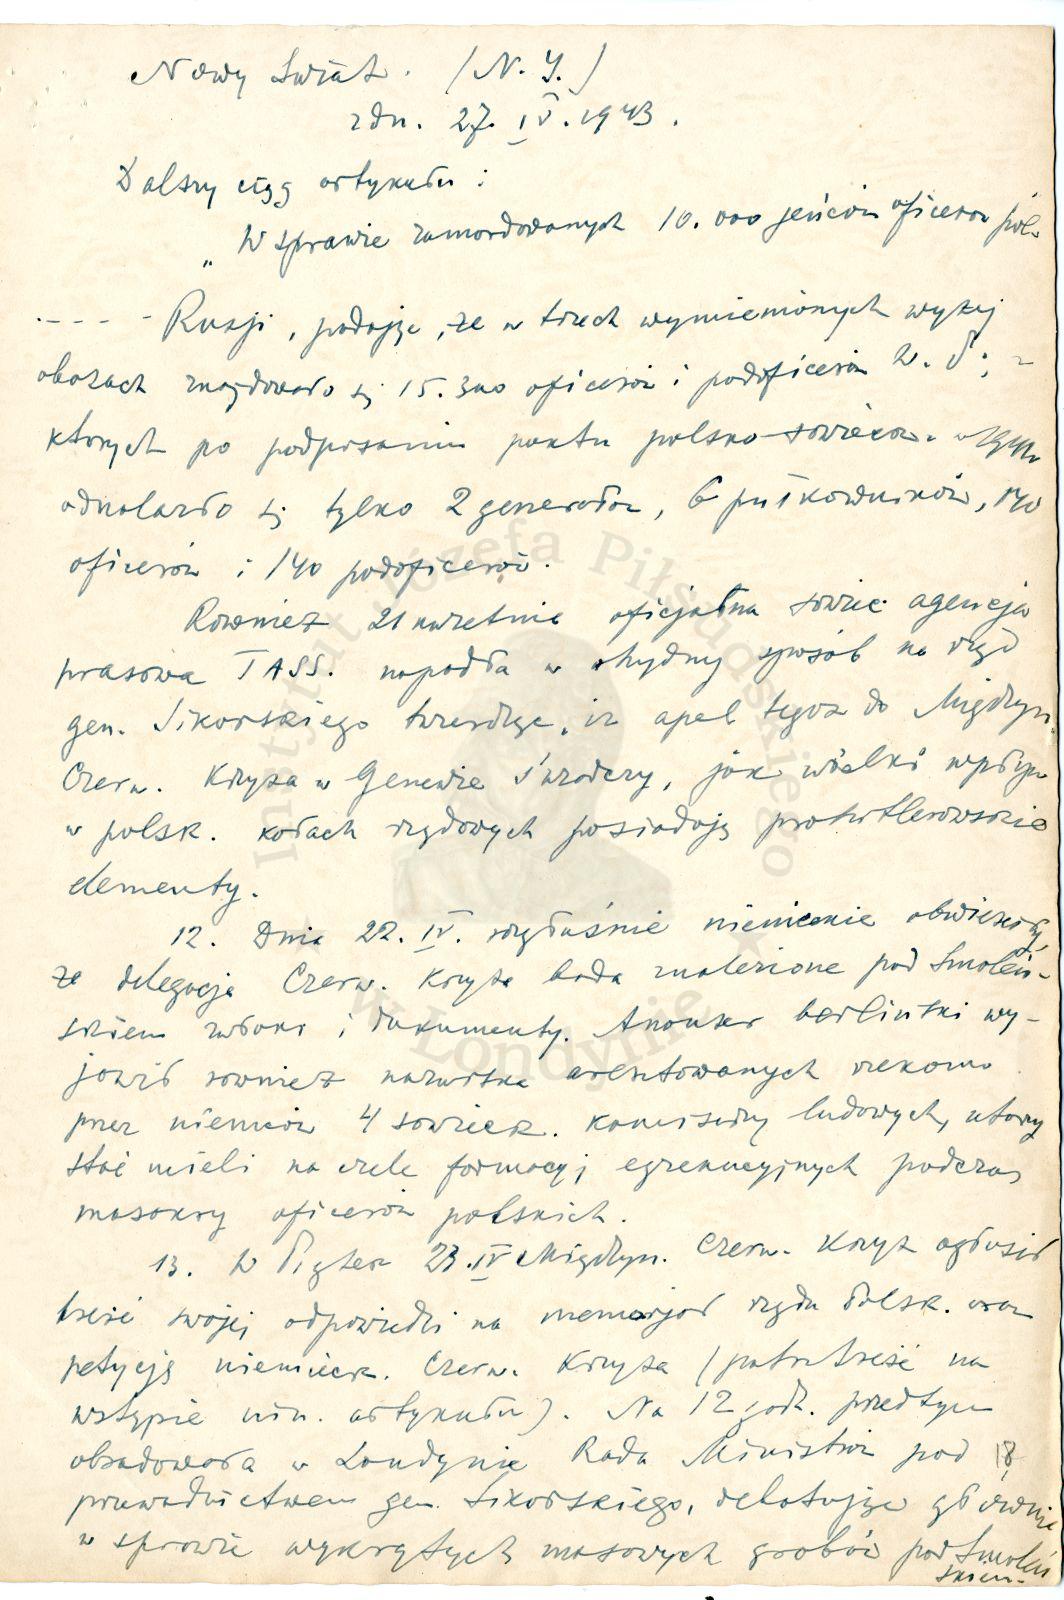 Nowy Świat. (N. Y.)
z dn. 27. IV. 1943.
Dalszy ciąg artykułu :
„W sprawie zamordowanych 10.000 jeńców oficerów pols.
. - - - - Rosji, podając, że w trzech wymienionych wyżej
obozach znajdowało się 15.300 oficerów i podoficerów W. P.; z
których po podpisaniu paktu polsko-sowieck.
odnalazło się tylko 2 generałów, 6 pułkowników, 140
oficerów i 140 podoficerów.
Również 21 kwietnia oficjalna sowiec. agencja
prasowa TASS. napadła w ohydny sposób na rząd
gen. Sikorskiego twierdząc, iż apel tegoż do Międzyn.
Czerw. Krzyża w Genewie świadczy, jak wielki wpływ
w polsk. kołach rządowych posiadają prohitlerowskie
elementy.
12. Dnia 22. IV. rozgłośnie niemieckie obwieściły,
że delegacja Czerw. Krzyża bada znalezione pod Smoleń-
skiem zwłoki i dokumenty. Anonser berliński wy-
jawił również nazwiska aresztowanych rzekomo
przez niemców 4 sowieck. komisarzy ludowych, którzy
stać mieli na czele formacyj egzekucyjnych podczas
masakry oficerów polskich.
13. W Piątek 23. IV Międzyn. Czerw. Krzyż ogłosił
treść swojej odpowiedzi na memorjał rządu Polsk. oraz
petycję niemieck. Czerw. Krzyża (patrz treść na
wstępie nin. artykułu). Na 12 godz. przedtym
obradowała w Londynie Rada Ministrów pod
przewodnictwem gen. Sikorskiego, debatując głównie
w sprawie wykrytych masowych grobów pod Smoleń
skiem.
18
Instytut Józefa Piłsudskiego
w Londynie